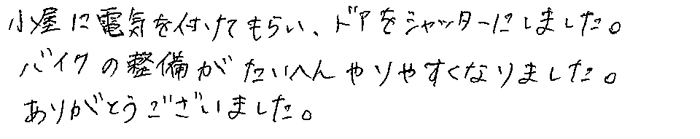 小屋に電気を付けてもらい、ドアをシャッターにしました。
バイクの整備がたいへんやりやすくなりました。
ありがとうございました。